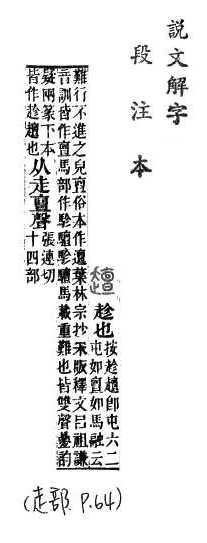 說文解字
段注本
䟢
趁也
按趁䟢卽屯六二
屯如亶如馬融云
難行不進之皃亶俗本作邅葉林宗抄宋版釋文呂祖謙
音訓皆作亶馬部作駗驙駗驙馬載重難也皆雙聲曡韵
疑兩篆下本
皆作趁䟢也
从走亶聲
張連切
十四部
(走部 P.64)